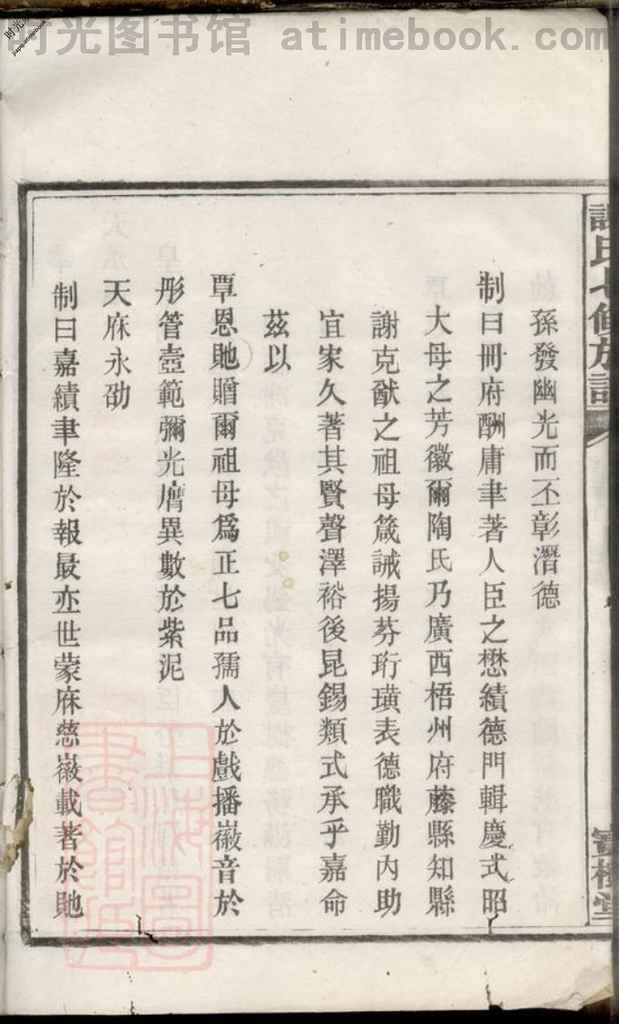 时光图书馆 atimebook.com
氏七修族譜
寶樹堂
孫發幽光而丕彰潛德
制曰冊府酬庸聿著人臣之懋績德門輯慶式昭
大母之芳徽爾陶氏乃廣西梧州府藤縣知縣
謝克猷之祖母箴誡揚芬珩璜表德職勤內助
宜家久著其賢聲澤裕後昆錫類式承乎嘉命
茲以
覃恩貤贈爾祖母爲正七品孺人於戲播徽音於
彤管壼範彌光膺異數於紫泥
天庥永劭
制曰嘉績聿隆於報最亦世蒙庥慈徽載著於貤
上海圖書館藏